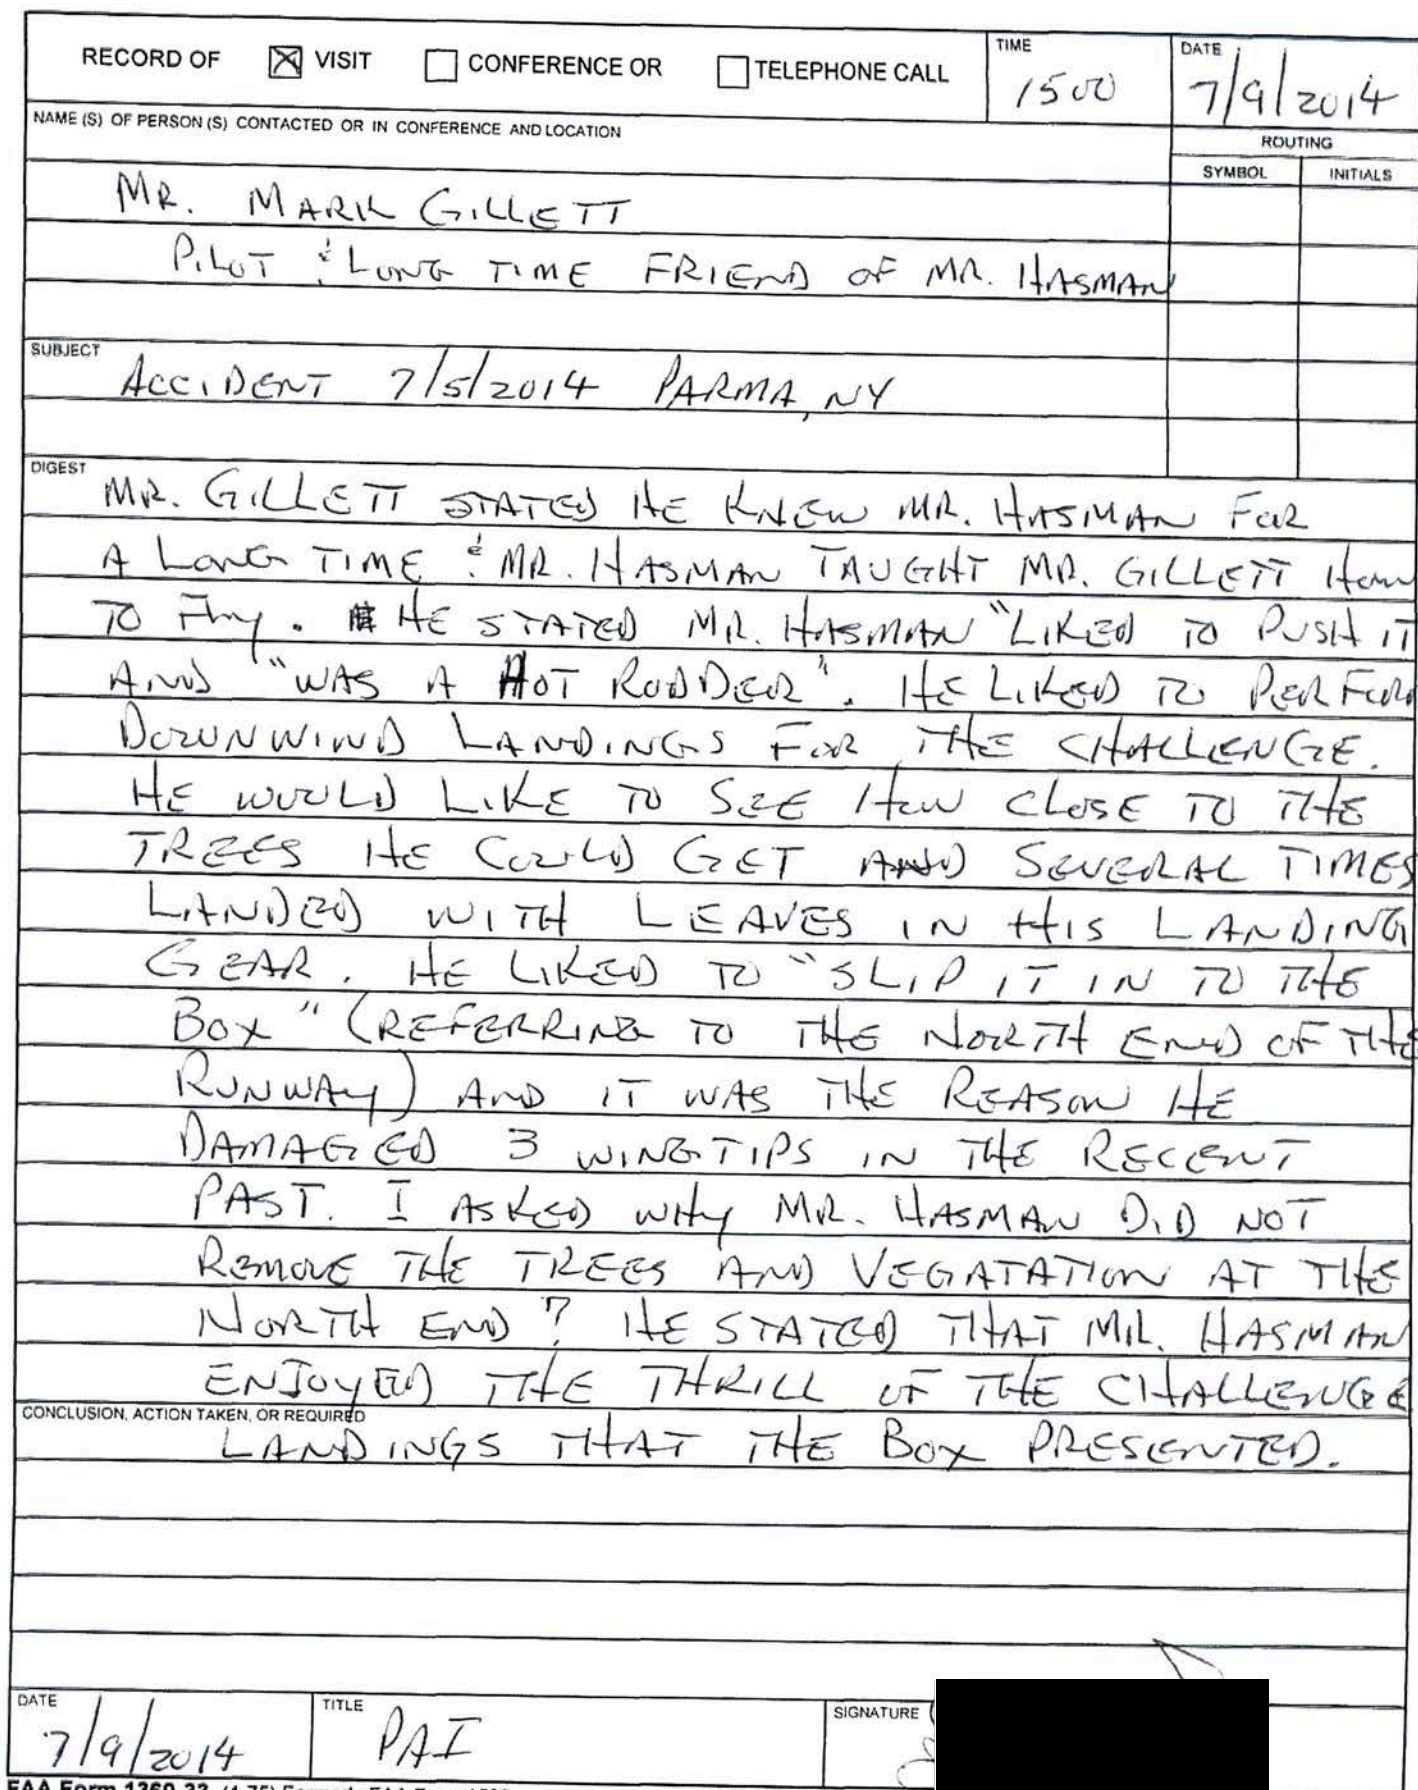 RECORD OF VISIT CONFERENCE OR TELEPHONE CALL
TIME
1500
DATE
7/9/2014
NAME (S) OF PERSON (S) CONTACTED OR IN CONFERENCE AND LOCATION
ROUTING
SYMBOL INITIALS
MR. MARK GILLETT
PILOT & LONG TIME FRIEND OF MR. HASMAN
SUBJECT
ACCIDENT 7/5/2014 PARMA, NY
DIGEST
MR. GILLETT STATED HE KNEW MR. HASMAN FOR
A LONG TIME & MR. HASMAN TAUGHT MR. GILLETT HOW
TO FLY. HE STATED MR. HASMAN "LIKED TO PUSH IT
AND "WAS A HOT RODDER". HE LIKED TO PERFOR
DOWNWIND LANDINGS FOR THE CHALLENGE.
HE WOULD LIKE TO SEE HOW CLOSE TO THE
TREES HE COULD GET AND SEVERAL TIMES
LANDED WITH LEAVES IN HIS LANDING
GEAR. HE LIKED TO "SLIP IT IN TO THE
BOX" (REFERRING TO THE NORTH END OF THE
RUNWAY) AND IT WAS THE REASON HE
DAMAGED 3 WINGTIPS IN THE RECENT
PAST. I ASKED WHY MR. HASMAN DID NOT
REMOVE THE TREES AND VEGATATION AT THE
NORTH END? HE STATED THAT MR. HASMAN
ENJOYED THE THRILL OF THE CHALLENGE
CONCLUSION, ACTION TAKEN, OR REQUIRED
LANDINGS THAT THE BOX PRESENTED.
DATE
7/9/2014
TITLE
PAI
SIGNATURE
FAA Form 1360-33